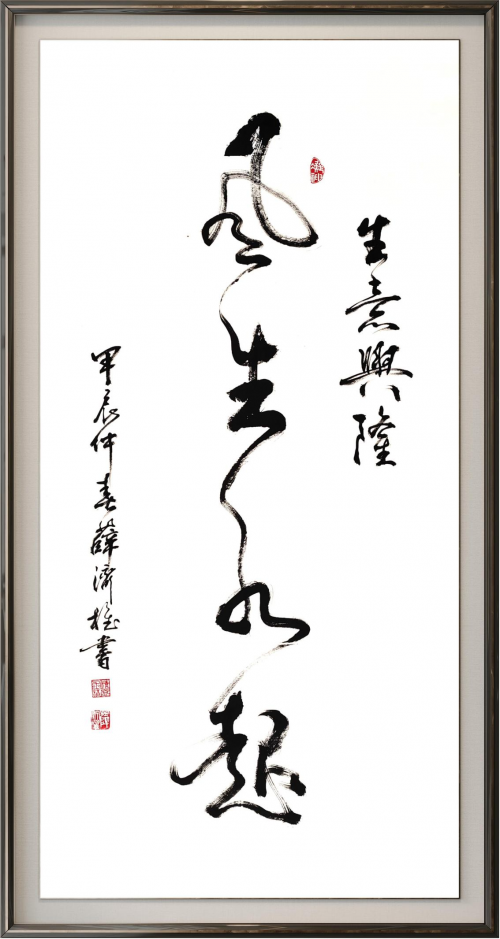 生意興隆
風生水起
甲辰仲春薛濟雄書